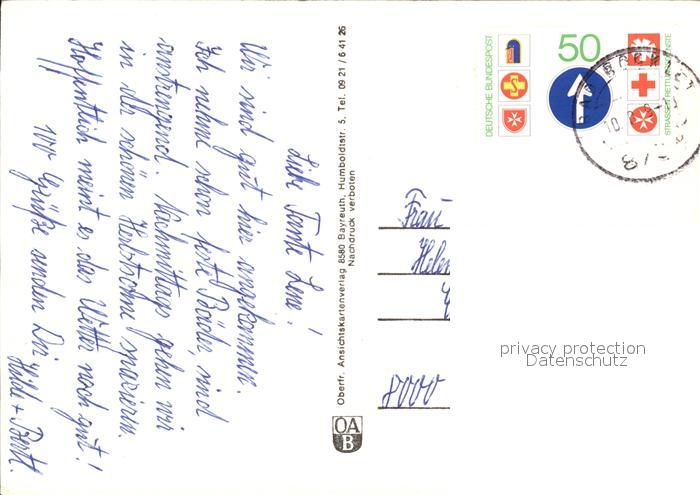 Liebe Tante Lene!
Wir sind gut hier angekommen.
Ich nehme schon feste Bäder, sind
anstrengend. Nachmittags gehen wir
in der schönen Herbstsonne spazieren.
Hoffentlich meint es das Wetter noch gut!
100 Grüße senden Dir
Hilde + Bertl.
Oberfr. Ansichtskartenverlag 8580 Bayreuth, Humboldtstr. 5, Tel. 09 21 / 6 41 26
Nachdruck verboten
OA
B
DEUTSCHE BUNDESPOST
50
Frau
Helen
8000
privacy protection
Datenschutz